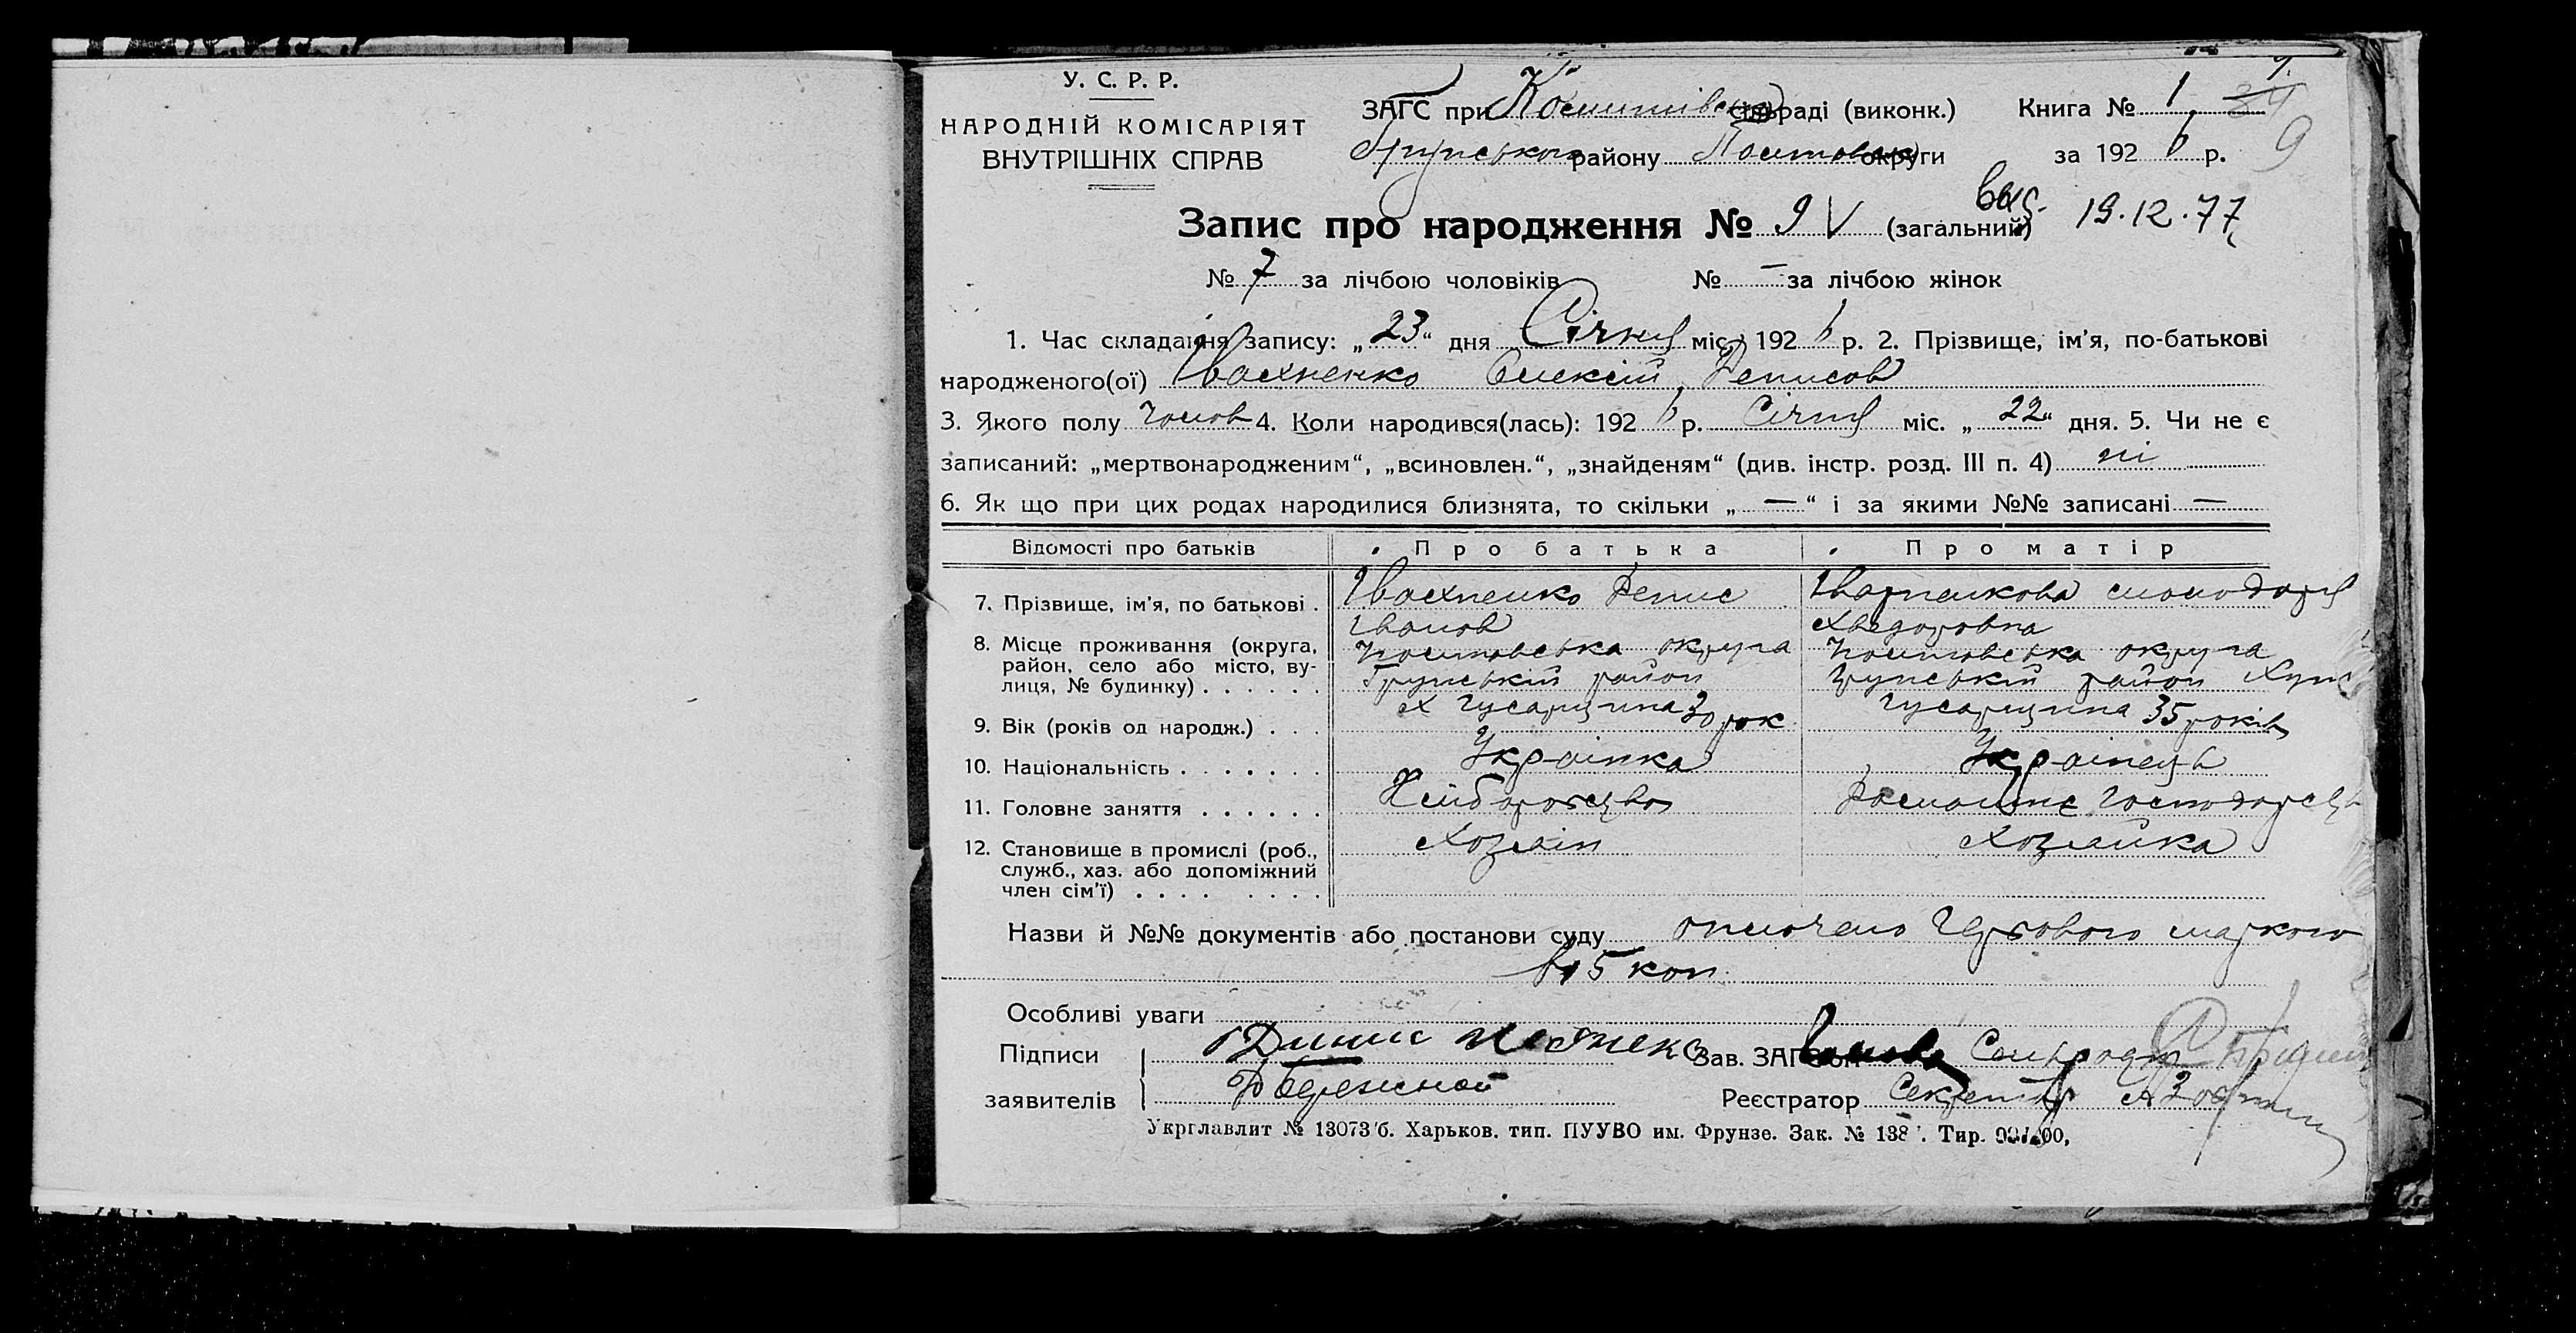 У. С. Р. Р.
НАРОДНІЙ КОМІСАРІЯТ
ВНУТРІШНІХ СПРАВ
ЗАГС при сільраді (виконк.) Книга № 1
Грунського району Полтавськ округи за 192 6 р. 9
Запис про народження № 9 V (загальний) 19.12.77
№ 7 за лічбою чоловіків № — за лічбою жінок
1. Час складання запису: „23“ дня Січня міс. 192 6 р. 2. Прізвище, ім’я, по-батькові
народженого(ої) Івахненко Олексій Денисов
3. Якого полу Чолов 4. Коли народився(лась): 192 6 р. Січня міс. „22“ дня. 5. Чи не є
записаний: „мертвонародженим“, „всиновлен.“, „знайденям“ (див. інстр. розд. III п. 4) ні
6. Як що при цих родах народилися близнята, то скільки „—“ і за якими №№ записані —
Відомості про батьків Про батька Про матір
7. Прізвище, ім’я, по батькові . Івахненко Денис
Іванов Хведоровна
8. Місце проживання (округа, Полтавська округа Полтавська округа
район, село або місто, ву- Грунській район Грунській район
лиця, № будинку) . . . . . . х Гусарщина Гусарщина
9. Вік (років од народж.) . . . 30 рок 35 років
10. Національність . . . . . . . Українка Українець
11. Головне заняття . . . . . . Хліборобство Домашнє Господарств
12. Становище в промислі (роб., Хозяін Хозяйка
служб., хаз. або допоміжний
член сім’ї) . . . . . . . .
Назви й №№ документів або постанови суду оплочено Гербового маркою
в 15 коп.
Особливі уваги
Підписи Зав. ЗАГС’ом Сельради
заявителів Бережной Реєстратор Секретар
Укрглавлит № 13073/б. Харьков. тип. ПУУВО им. Фрунзе. Зак. № 138 . Тир.